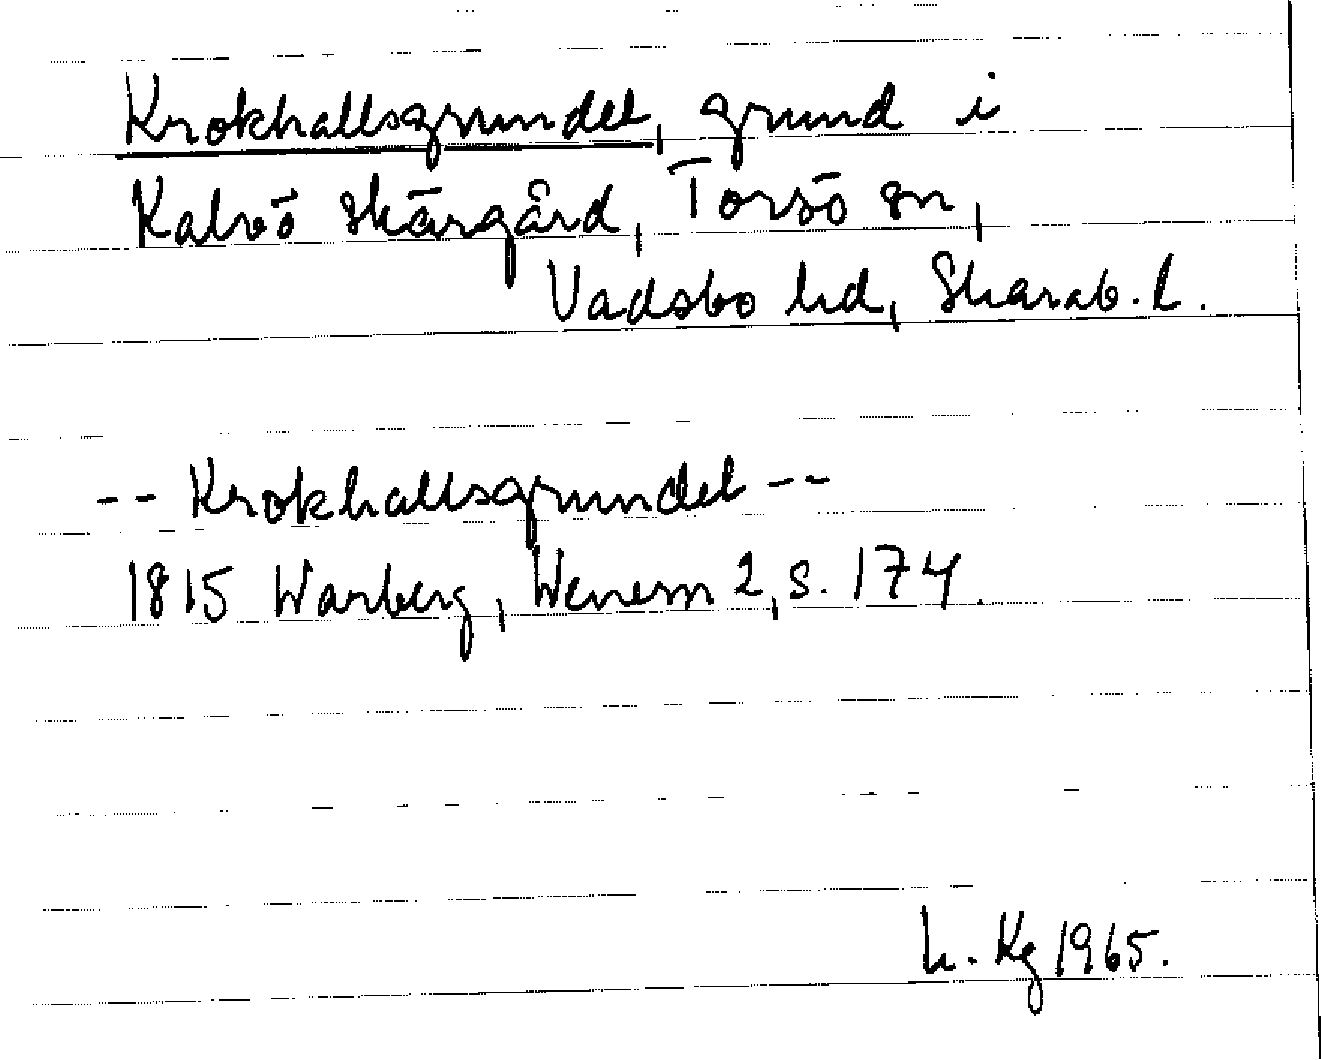 Krokhallsgrundet, grund i
Kalvö skärgård, Torsö sn,
Vadsbo hd, Skarab. l.
-- Krokhallsgrundet --
1815 Warberg, Wenern 2, s. 174.
h. Kg 1965.